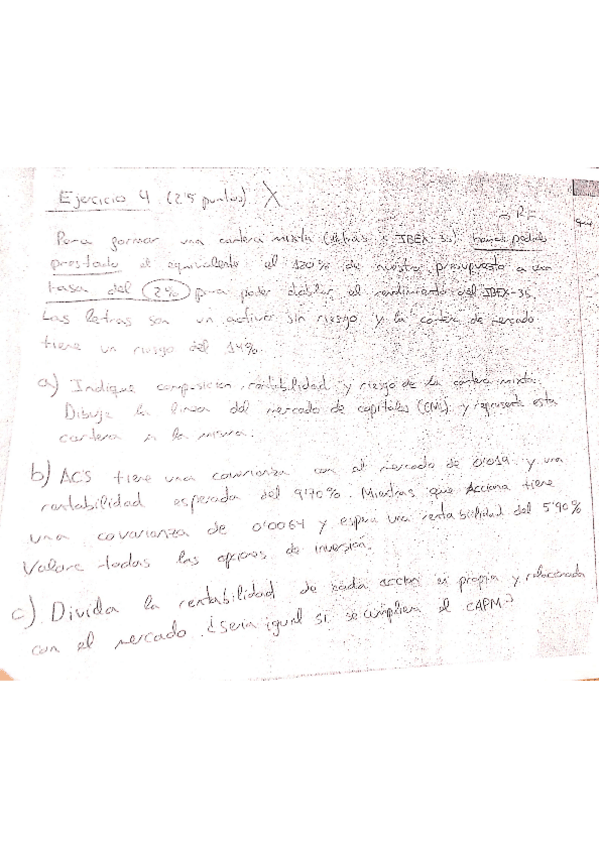 Ejercicio 4 (2'5 puntos) X
→ R =
Para formar una cartera mixta (letras e IBEX-35) hemos pedido
prestado el equivalente al 120% de nuestro presupuesto a una
tasa del 2% para poder doblar el rendimiento del IBEX-35.
Las letras son un activo sin riesgo y la cartera de mercado
tiene un riesgo del 14%.
a) Indique composición, rentabilidad y riesgo de la cartera mixta.
Dibuje la linea del mercado de capitales (CML) y represente esta
cartera en la misma.
b) ACS tiene una covarianza con el mercado de 0'019 y una
rentabilidad esperada del 9'70%. Mientras que Acciona tiene
una covarianza de 0'0064 y espera una rentabilidad del 5'90%
Valore todas las opciones de inversión.
c) Divida la rentabilidad de cada acción en propia y relacionada
con el mercado. ¿Sería igual si se cumpliera el CAPM?